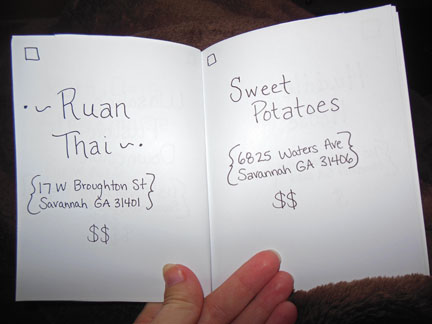 Ruan
Thai
17 W Broughton St
Savannah GA 31401
$$
Sweet
Potatoes
6825 Waters Ave
Savannah GA 31406
$$